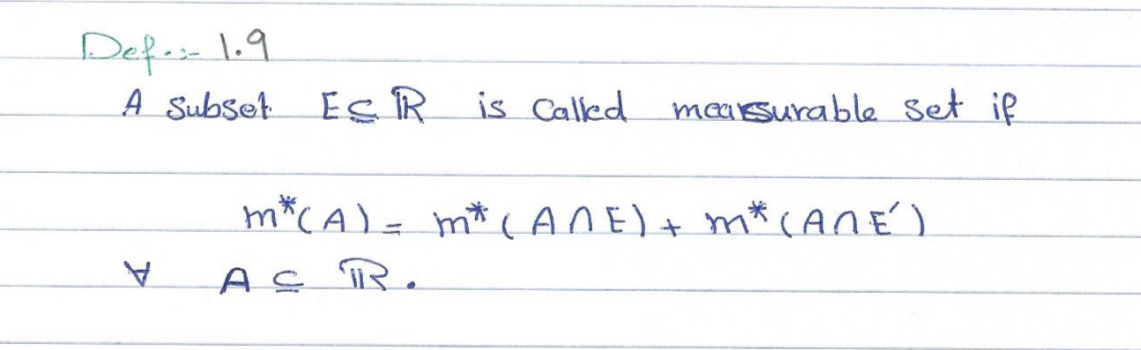 Def.:- 1.9
A subset E ⊆ ℝ is called measurable set if
m*(A) = m* (A∩E) + m* (A∩E′)
∀ A ⊆ ℝ.